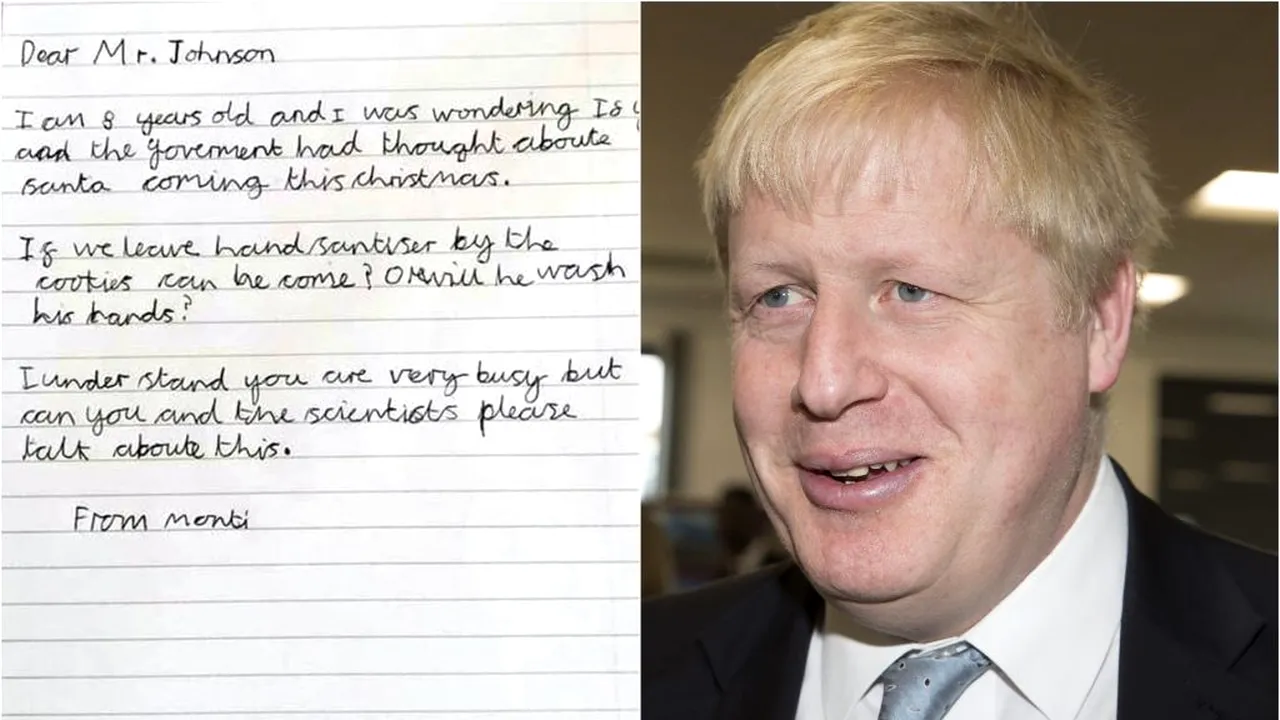 Dear Mr. Johnson
I am 8 years old and I was wondering If
and the goverment had thought aboute
santa coming this christmas.
If we leave hand santiser by the
cookies can he come? Or will he wash
his hands?
I under stand you are very busy but
can you and the scientists please
talk aboute this.
From Monti